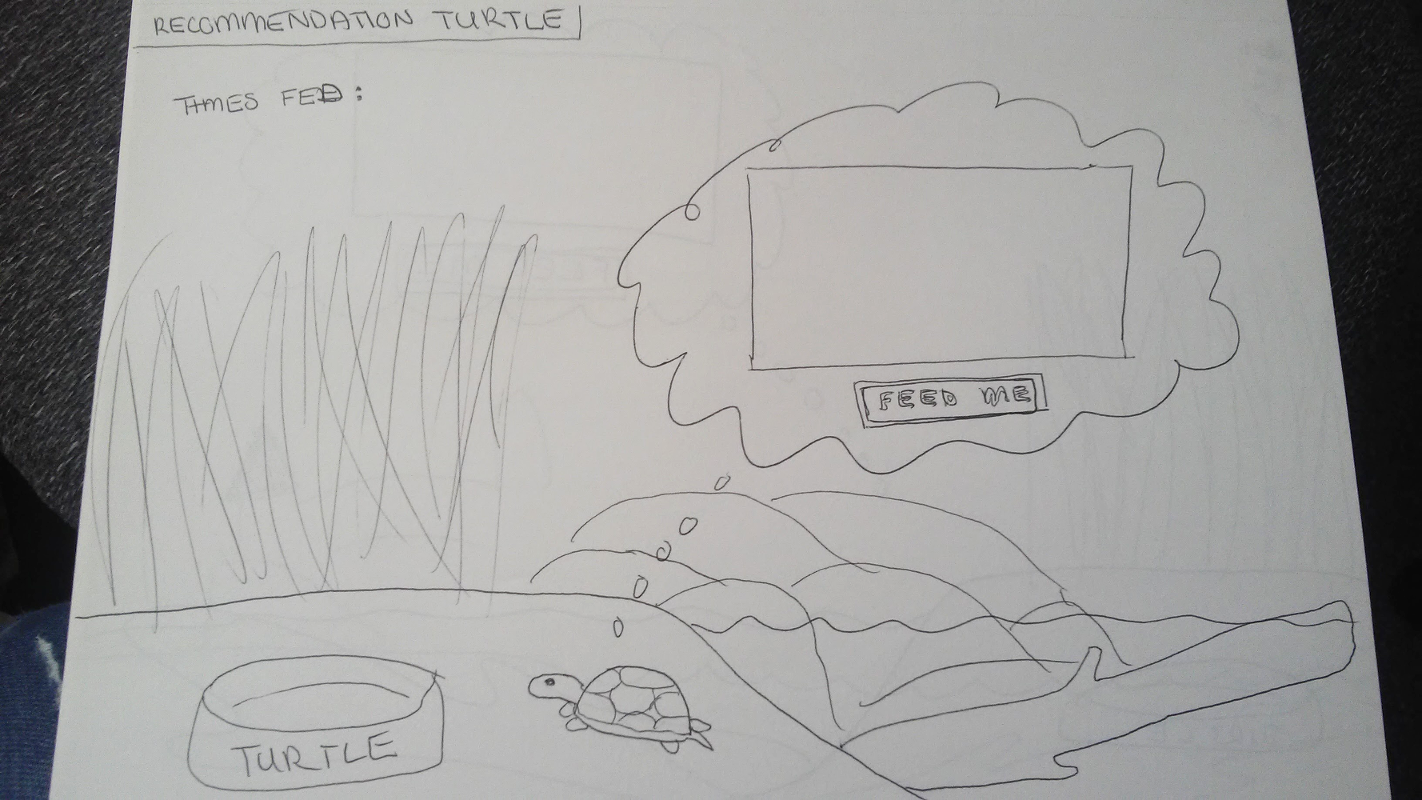 RECOMMENDATION TURTLE
TIMES FED:
FEED ME
TURTLE